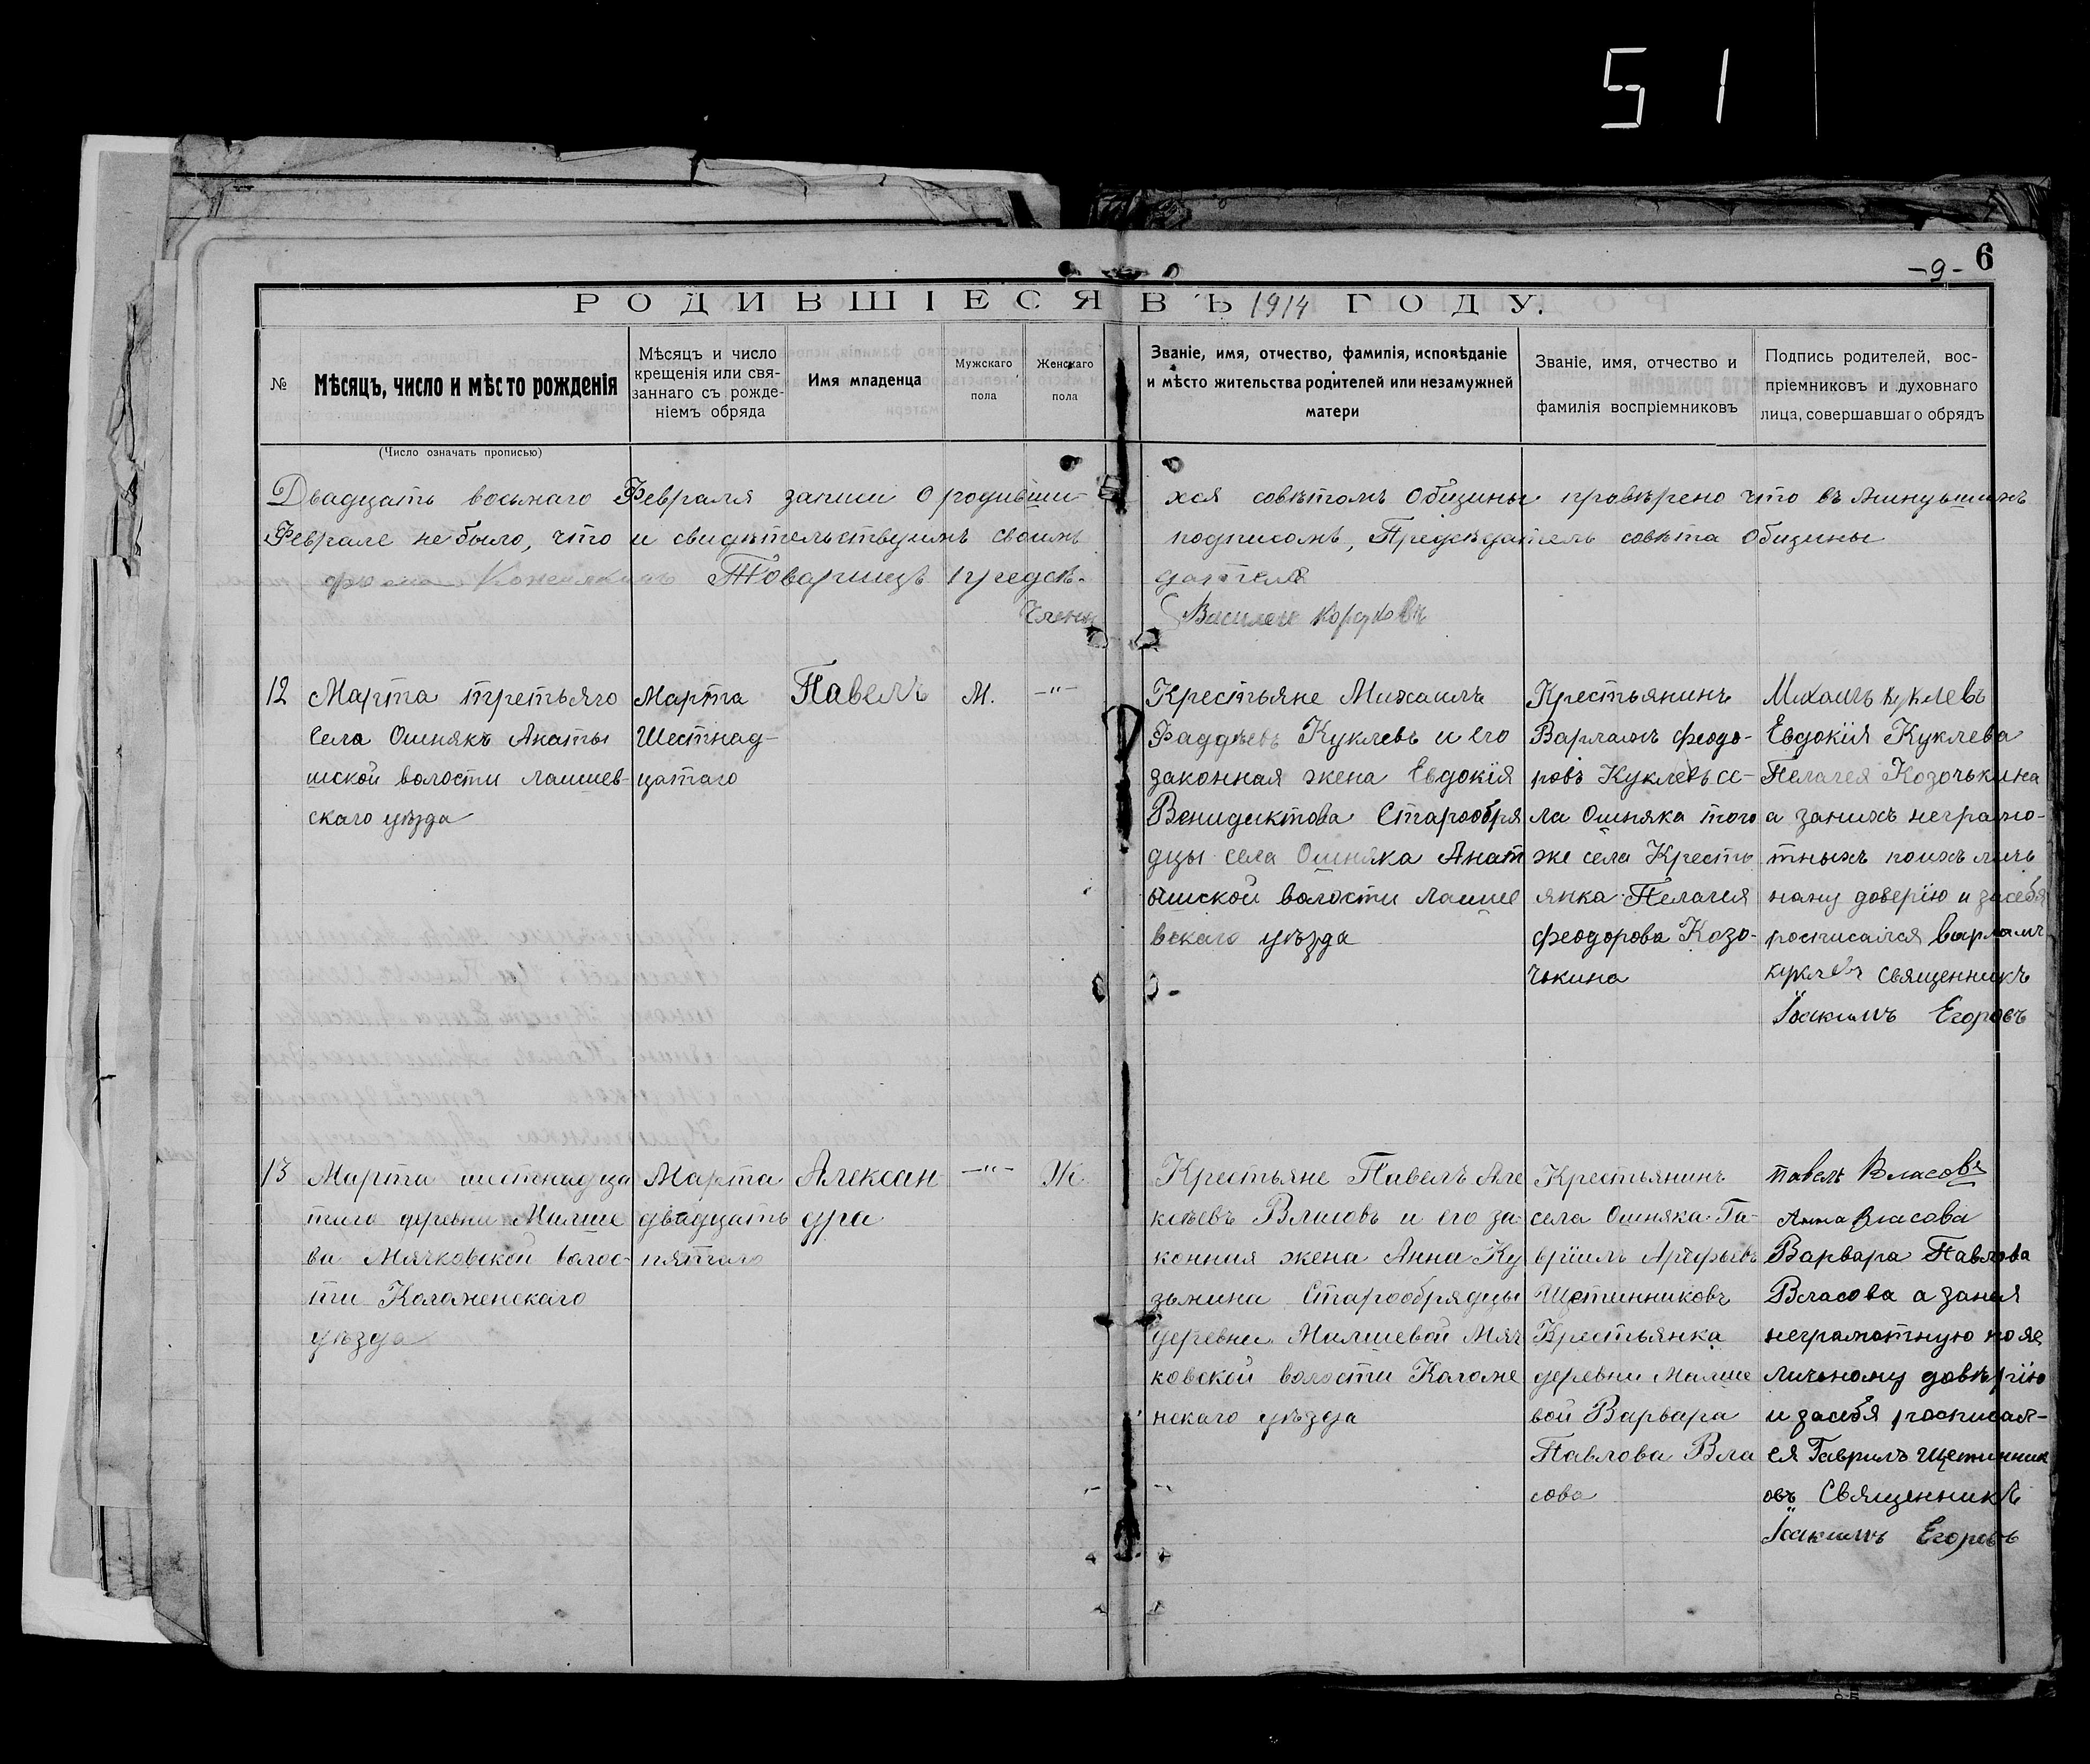 51
6
-9-
РОДИВШІЕСЯ ВЪ 1914 ГОДУ.
№
Мѣсяцъ, число и мѣсто рожденія
(Число означать прописью)
Мѣсяцъ и число
крещенія или свя-
заннаго съ рожде-
ніемъ обряда
Имя младенца
Мужскаго
пола
Женскаго
пола
Званіе, имя, отчество, фамилія, исповѣданіе
и мѣсто жительства родителей или незамужней
матери
Званіе, имя, отчество и
фамилія воспріемниковъ
Подпись родителей, вос-
пріемниковъ и духовнаго
лица, совершавшаго обрядъ
Двадцать восьмаго Февраля записи о родивши- хся совѣтомъ Общины провѣрено что въ минувшихъ
Феврале не было, что и свидѣтельствуимъ своимъ подписомъ, Предсѣдатель совѣта Общины
Товарищъ предсѣ- дателя
Члены Василеи
12
Марта третьяго
Села Ошнякъ Анаты
шской волости Лаишев-
скаго уѣзда
Марта
Шестнад-
цатаго
Павелъ
М.
-"-
Крестьяне Михаилъ
Фаддѣевъ Куклевъ и его
законная жена Евдокія
Венидиктова Старообря
дцы села Ошняка Анат
ышской волости Лаише
вскаго уѣзда
Крестьянинъ
Варламъ Феодо-
ровъ Куклевъ се-
ла Ошняка того
же села Кресть
янка Пелагия
Феодорова Козо-
чькина
Михаилъ Куклевъ
Евдокія Куклева
Пелагея Козочькина
а занихъ неграмо-
тныхъ поихъ личь
ному доверію и засебя
росписался Варламъ
Куклевъ Священникъ
Іоакимъ Егоровъ
13
Марта шестнадца
таго деревни Малше
ва Мячковской волос-
ти Коломенскаго
уѣзда
Марта
двадцать
пятаго
Алексан
дра
-"-
Ж
Крестьяне Павелъ Але
ксѣевъ Власовъ и его за-
конная жена Анна Ку
зьмина Старообрядцы
деревни Малшевой Мяч
ковской волости Коломе
нскаго уѣзда
Крестьянинъ
села Ошняка Га-
вріилъ Арефьевъ
Щетинниковъ
Крестьянка
деревни Малше
вой Варвара
Павлова Вла
сова
Павелъ Власовъ
Анна Власова
Варвара Павлова
Власова а занея
неграмотную по ее
личеному довѣрію
и засебя росписал-
ся Гаврилъ Щетинник
овъ Священникъ
Іоакимъ Егоровъ